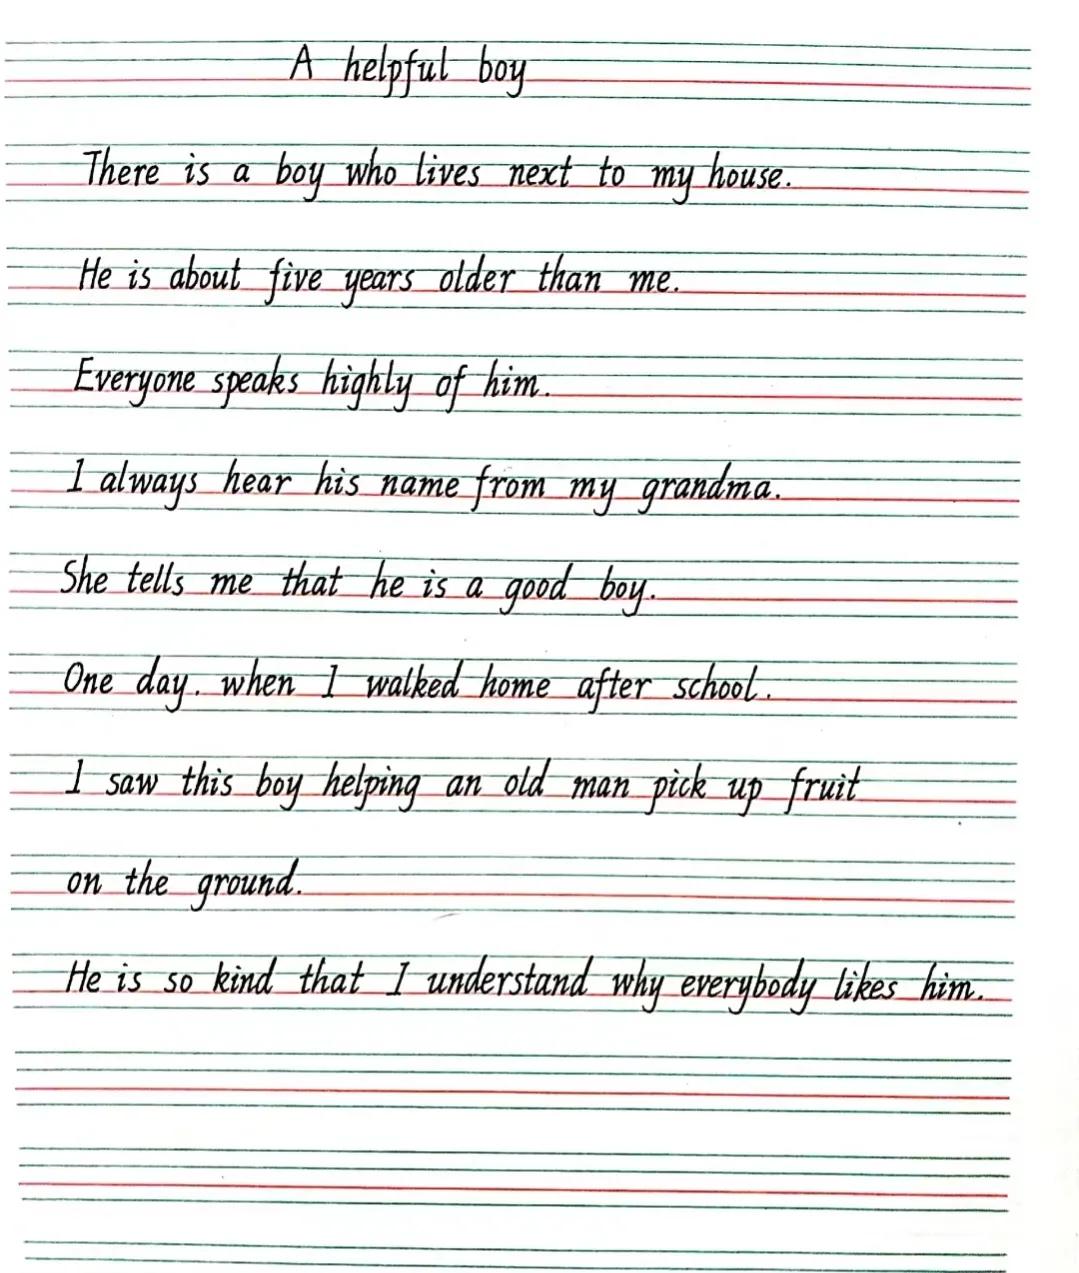 A helpful boy
There is a boy who lives next to my house.
He is about five years older than me.
Everyone speaks highly of him.
I always hear his name from my grandma.
She tells me that he is a good boy.
One day. when I walked home after school.
I saw this boy helping an old man pick up fruit
on the ground.
He is so kind that I understand why everybody likes him.